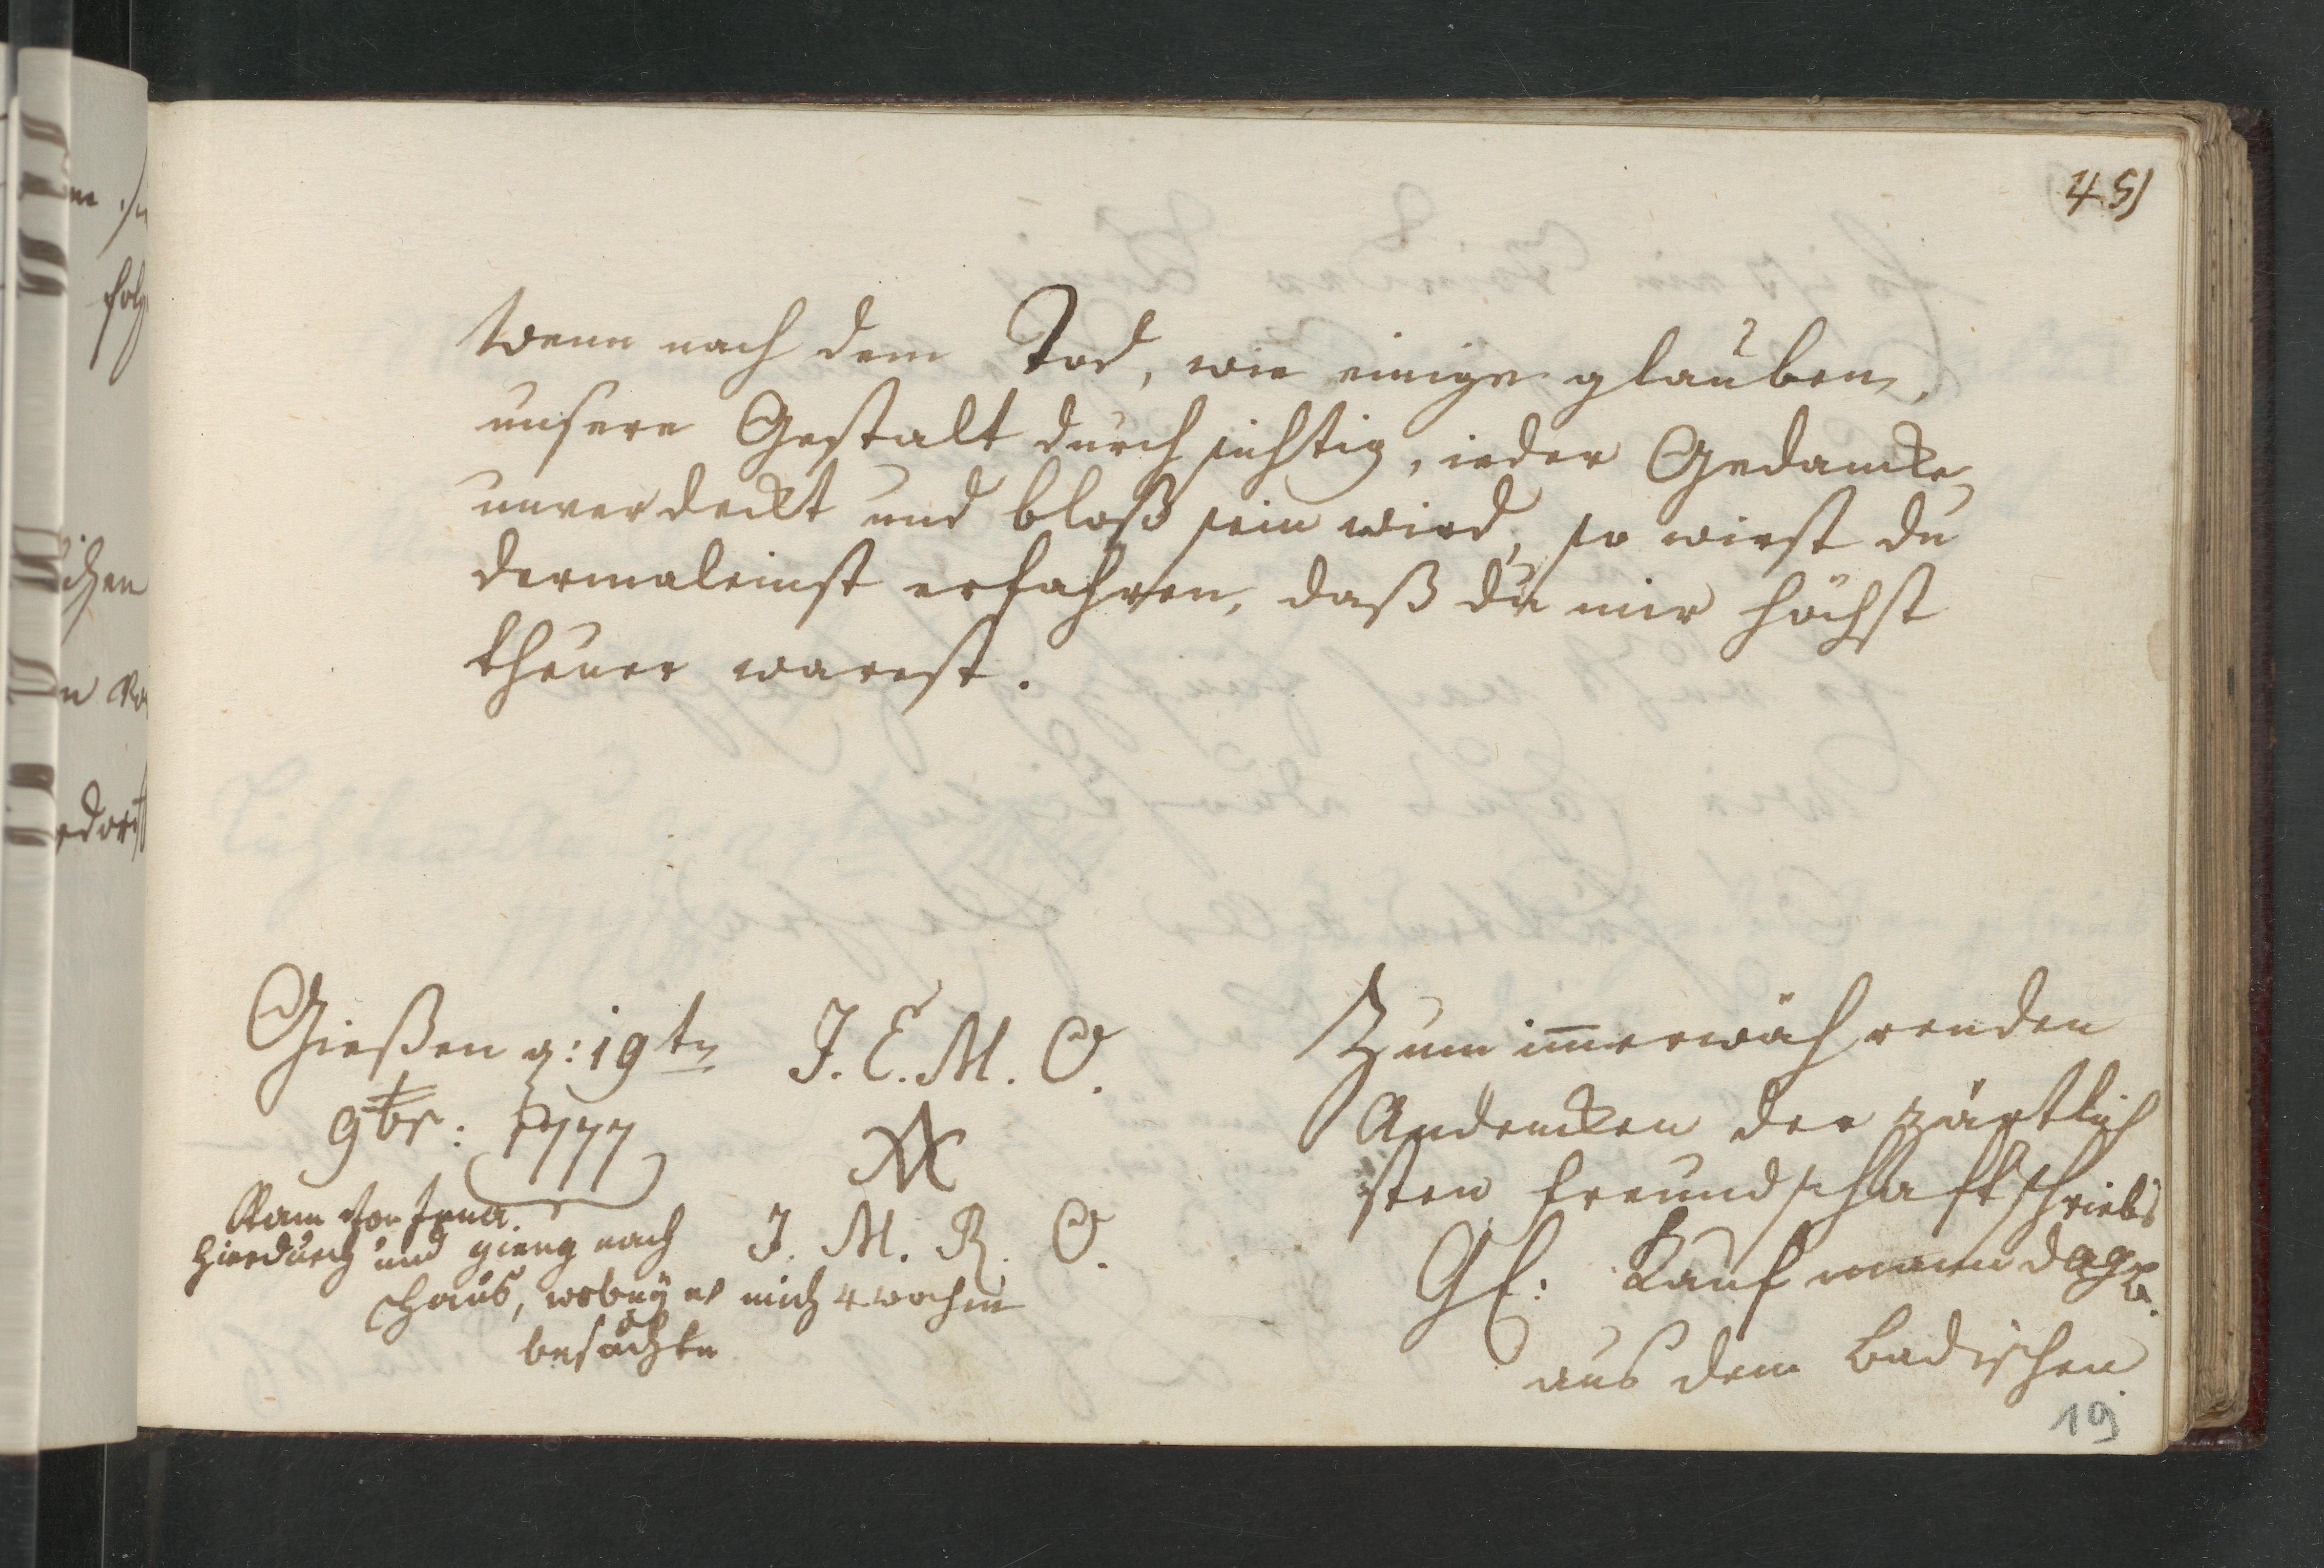 45)
Wenn nach dem Tod, wie einige glauben,
unsere Gestalt durchsichtig, ieder Gedancke
unverdeckt und bloß sein wird, so wirst du
dermaleinst erfahren, daß du mir höchst
theuer warest.
Gießen d: 19t
9br: 1777
J. E. M. O.
J. M. R. O.
Kam von Jena
hierdurch und gieng nach
Haus, wobey er mich 4 wochen
besuchte
Zum im̄erwährenden
Andencken der zärtlich
sten Freundschaft schriebs
Kaufmann d. G. G.
aus dem Badischen
19